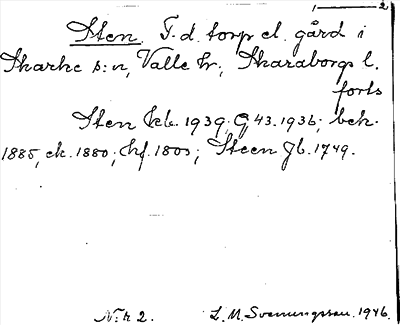 1 — 2
Sten. F. d. torp el. gård i
Skarke s:n, Valle hr, Skaraborgs l.
forts
Sten kb. 1939, G, 43. 1936; bek.
1885, ek. 1880; hf. 1803; Steen Jb. 1749.
N:r 2. L. M. Svenungsson. 1946.